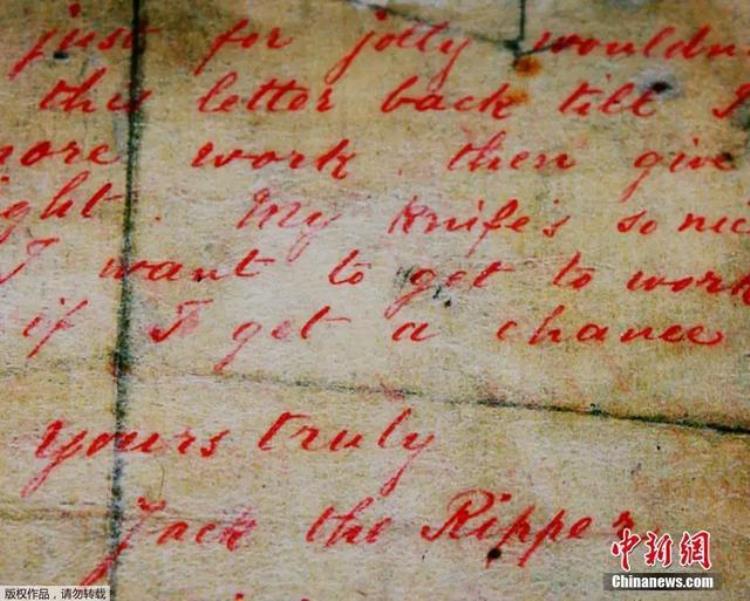 just for jolly wouldn
this letter back till I
more work. then give
ight. My knife's so nic
I want to get to work
if I get a chance
yours truly
Jack the Ripper
中新網
Chinanews.com
版权作品，请勿转载